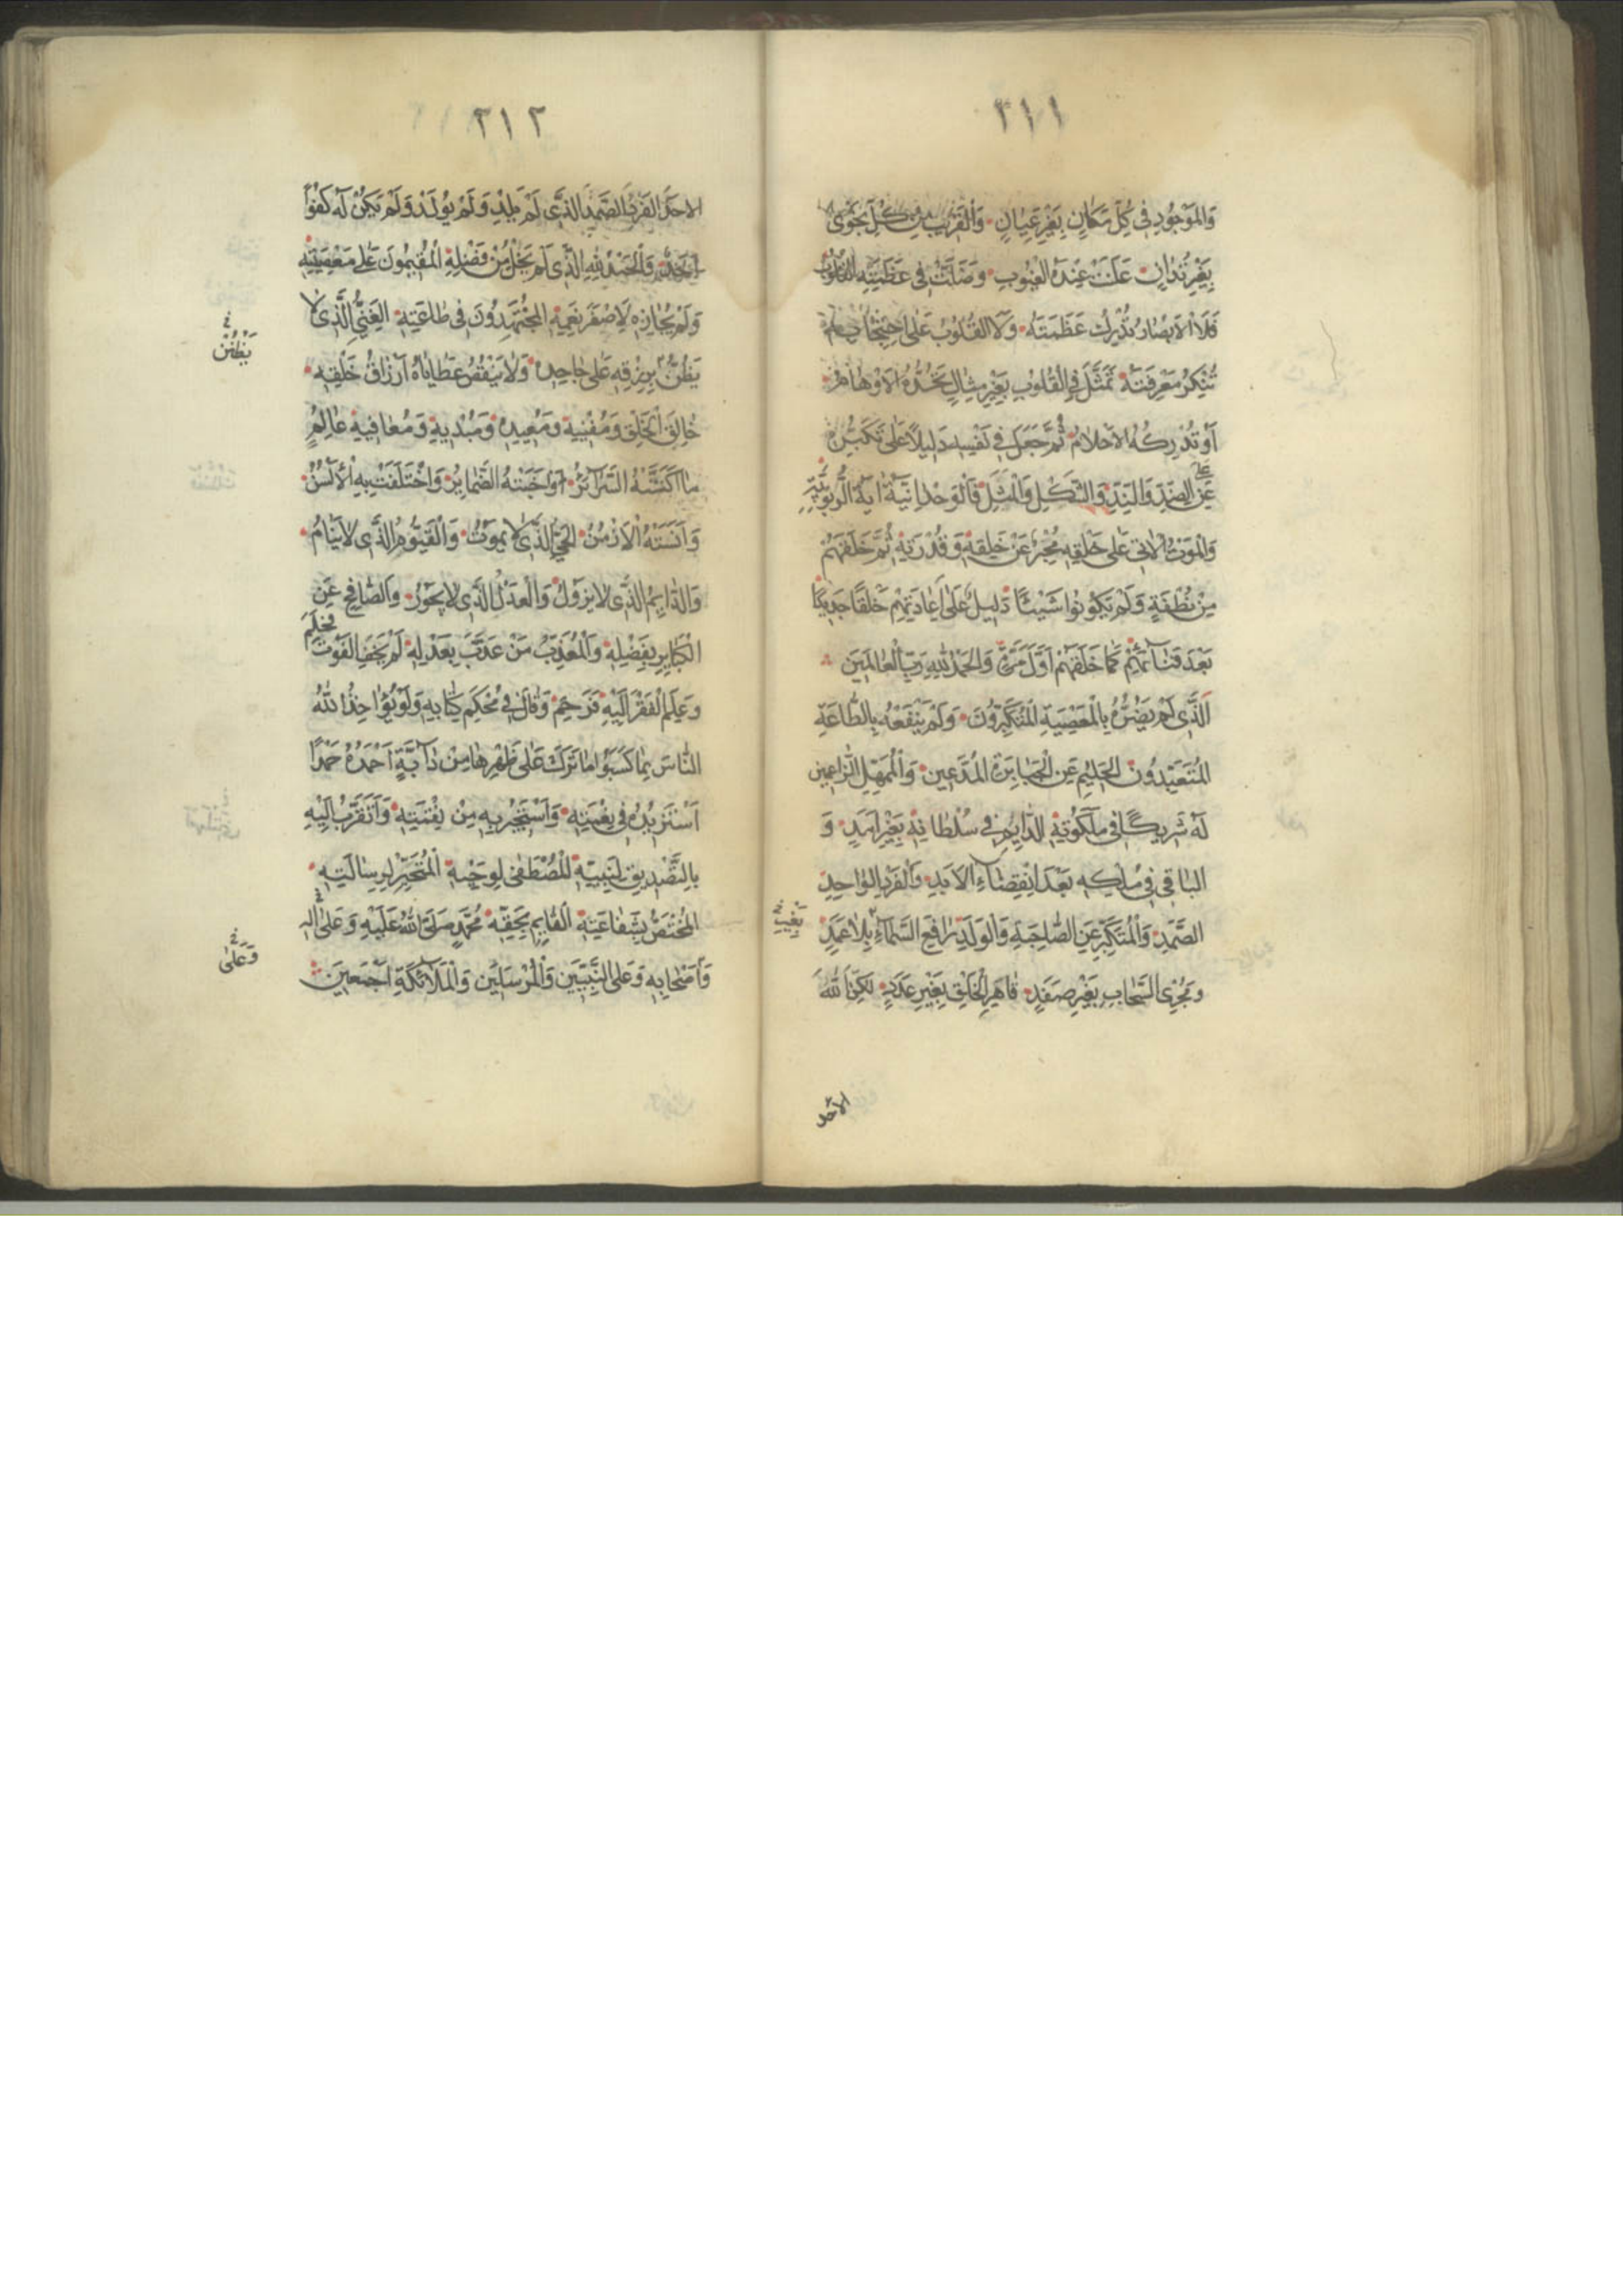 ٣١١
وَالمَوْجُودِ فِي كُلِّ مَكَانٍ بِغَيْرِ عَيَانٍ وَالْقَرِيْبِ مِنْ كُلِّ نَجْوٰى
بِغَيْرِ تَدَانٍ عَلَتْ عِنْدَهُ الْغُيُوبُ وَضَلَّتْ فِي عَظَمَتِهِ الْقُلُوْبُ
فَلَا الْاَبْصَارُ تُدْرِكُ عَظَمَتَهُ وَلَا الْقُلُوْبُ عَلٰى احْتِجَابِهِ
تُنْكِرُ مَعْرِفَتَهُ تَمَثَّلَ فِي الْقُلُوْبِ بِغَيْرِ مِثَالٍ تَحُدُّهُ الْاَوْهَامُ
اَوْ تُدْرِكُهُ الْاَحْلَامُ ثُمَّ جَعَلَ فِي نَفْسِهِ دَلِيْلًا عَلٰى تَكَبُّرِهِ
عَنِ الضِّدِّ وَالنِّدِّ وَالشَّكْلِ وَالْمِثْلِ فَالْوَحْدَانِيَّةُ اٰيَةُ الرُّبُوبِيَّةِ
وَالْمَوْتُ الْاٰتِي عَلٰى خَلْقِهِ مُخْبِرٌ عَنْ خَلْقِهِ وَقُدْرَتِهِ ثُمَّ خَلَقَهُمْ
مِنْ نُطْفَةٍ وَلَمْ يَكُوْنُوا شَيْئًا دَلِيلٌ عَلٰى اِعَادَتِهِمْ خَلْقًا جَدِيدًا
بَعْدَ فَنَائِهِمْ كَمَا خَلَقَهُمْ اَوَّلَ مَرَّةٍ وَالْحَمْدُ لِلّٰهِ رَبِّ الْعَالَمِيْنَ
الَّذِي لَمْ يَضُرُّهُ بِالْمَعْصِيَةِ الْمُتَكَبِّرُوْنَ وَلَمْ يَنْفَعْهُ بِالطَّاعَةِ
الْمُتَعَبِّدُوْنَ الْحَلِيْمِ عَنِ الْجَبَابِرَةِ الْمُدَّعِيْنَ وَالْمُمْهِلِ الزَّاعِمِيْنَ
لَهُ شَرِيْكًا فِي مَلَكُوْتِهِ الدَّايِمِ فِي سُلْطَانِهِ بِغَيْرِ اَمَدٍ وَ
الْبَاقِي فِي مُلْكِهِ بَعْدَ انْقِضَاءِ الْاَبَدِ وَالْفَرْدِ الْوَاحِدِ
الصَّمَدِ وَالْمُتَكَبِّرِ عَنِ الصَّاحِبَةِ وَالْوَلَدِ رَافِعِ السَّمَاءِ بِلَا عَمَدٍ
بِغَيْرِ
وَمُجْرِي السَّحَابِ بِغَيْرِ صَفَدٍ قَاهِرِ الْخَلْقِ بِغَيْرِ عَدَدٍ لٰكِنِ اللّٰهُ
الاَحَد
٣١٢
الاَحَدُ الْفَرْدُ الصَّمَدُ الَّذِي لَمْ يَلِدْ وَلَمْ يُوْلَدْ وَلَمْ يَكُنْ لَهُ كُفُوًا
اَحَدٌ وَالْحَمْدُ لِلّٰهِ الَّذِي لَمْ يَخْلُ مِنْ فَضْلِهِ الْمُقِيمُونَ عَلٰى مَعْصِيَتِهِ
وَلَمْ يُجَازِهِ لِاَصْغَرِ نِعَمِهِ الْمُجْتَهِدُوْنَ فِي طَاعَتِهِ الْغَنِيُّ الَّذِي لَا
يَظُنُّ بِرِزْقِهِ عَلٰى جَاحِدِهِ وَلَا يَنْقُصُ عَطَايَاهُ اَرْزَاقُ خَلْقِهِ
خَالِقِ الْخَلْقِ وَمُفْنِيهِ وَمُعِيدِهِ وَمُبْدِيهِ وَمُعَافِيهِ عَالِمُ
مَا اَكَنَّتْهُ السَّرَائِرُ اَوْ اَخْبَتْهُ الضَّمَايِرُ وَاخْتَلَفَتْ بِهِ الْاَلْسُنُ
وَاَنْسَتْهُ الْاَزْمُنُ الْحَيُّ الَّذِي لَا يَمُوْتُ وَالْقَيُّوْمُ الَّذِي لَا يَنَامُ
وَالدَّايِمُ الَّذِي لَا يَزُوْلُ وَالْعَدْلُ الَّذِي لَا يَجُوْرُ وَالصَّافِحُ عَنِ
الْكَبَايِرِ بِفَضْلِهِ وَالْمُعَذِّبُ مَنْ عَذَّبَ بِعَدْلِهِ لَمْ يَخَفِ الْفَوْتَ فَحَلُمَ
وَعَلِمَ الْفَقْرَ اِلَيْهِ فَرَحِمَ وَقَالَ فِي مُحْكَمِ كِتَابِهِ وَلَوْ يُؤَاخِذُ اللّٰهُ
النَّاسَ بِمَا كَسَبُوا مَا تَرَكَ عَلٰى ظَهْرِهَا مِنْ دَابَّةٍ اَحْمَدُهُ حَمْدًا
اَسْتَزِيْدُهُ فِي نِعْمَتِهِ وَاَسْتَجِيْرُ بِهِ مِنْ نِقْمَتِهِ وَاَتَقَرَّبُ اِلَيْهِ
بِالتَّصْدِيْقِ لِنَبِيِّهِ الْمُصْطَفٰى لِوَحْيِهِ الْمُتَخَيَّرِ لِرِسَالَتِهِ
الْمُخْتَصِّ بِشَفَاعَتِهِ الْقَايِمِ بِحَقِّهِ مُحَمَّدٍ صَلَّى اللّٰهُ عَلَيْهِ وَعَلٰى اٰلِهِ
وَعَلٰى
وَاَصْحَابِهِ وَعَلَى النَّبِيِّيْنَ وَالْمُرْسَلِيْنَ وَالْمَلَائِكَةِ اَجْمَعِيْنَ